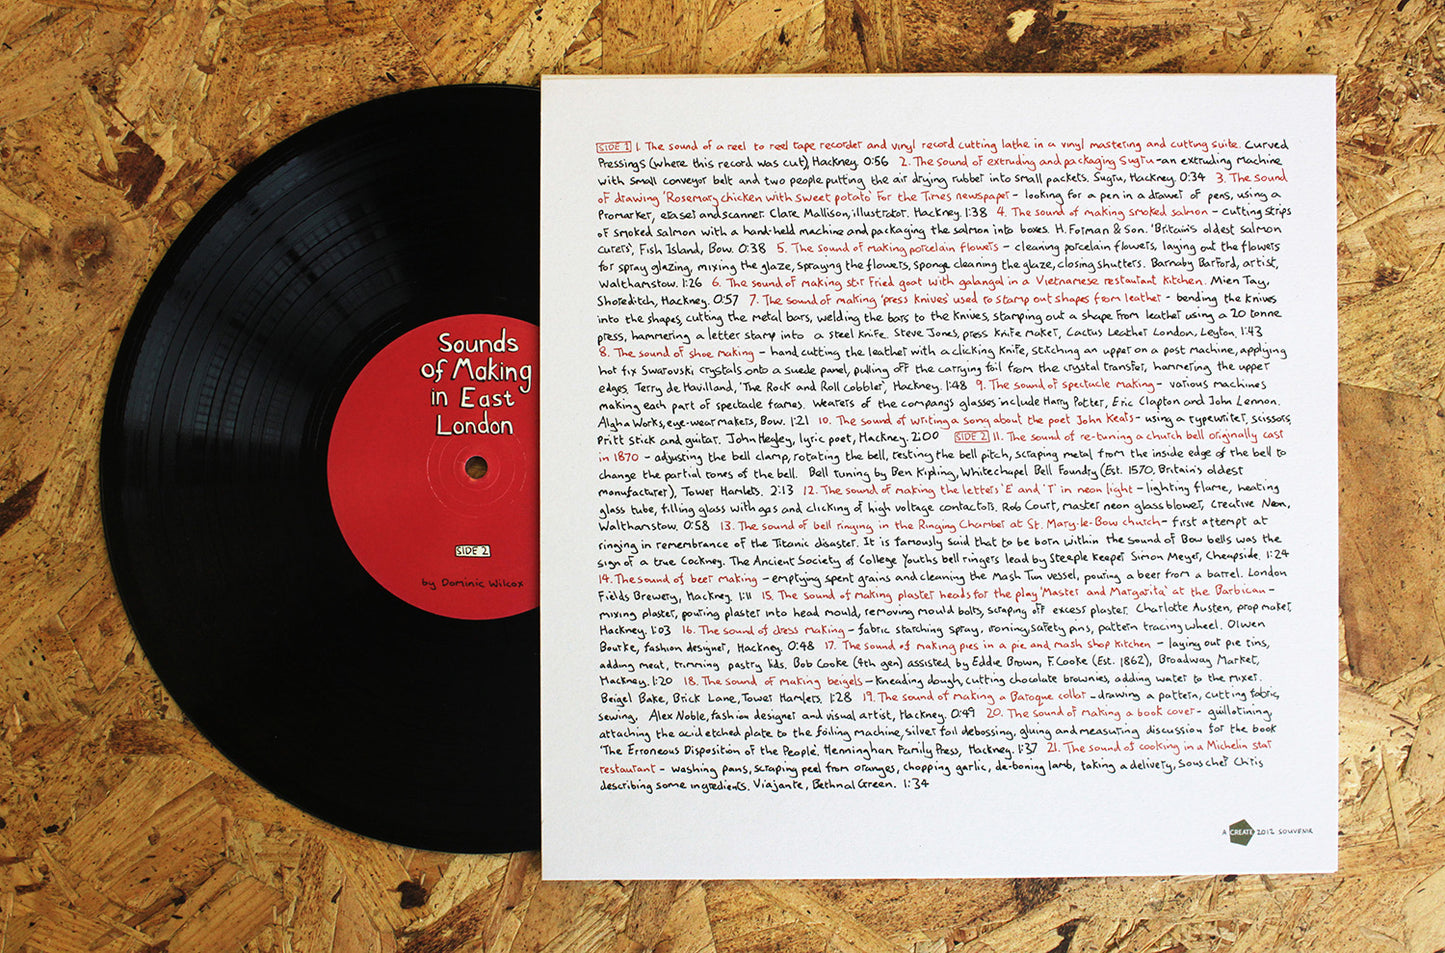 Sounds
of Making
in East
London
SIDE 2
by Dominic Wilcox
SIDE 1 1. The sound of a reel to reel tape recorder and vinyl record cutting lathe in a vinyl mastering and cutting suite. Curved
Pressings (where this record was cut), Hackney. 0:56 2. The sound of extruding and packaging Sugru - an extruding machine
with small conveyor belt and two people putting the air drying rubber into small packets. Sugru, Hackney. 0:34 3. The sound
of drawing 'Rosemary chicken with sweet potato' for the Times newspaper - looking for a pen in a drawer of pens, using a
Promarker, eraser and scanner. Clare Mallison, illustrator. Hackney. 1:38 4. The sound of making smoked salmon - cutting strips
of smoked salmon with a hand-held machine and packaging the salmon into boxes. H. Forman & Son. 'Britain's oldest salmon
curers', Fish Island, Bow. 0:38 5. The sound of making porcelain flowers - cleaning porcelain flowers, laying out the flowers
for spray glazing, mixing the glaze, spraying the flowers, sponge cleaning the glaze, closing shutters. Barnaby Barford, artist,
Walthamstow. 1:26 6. The sound of making stir fried goat with galangal in a Vietnamese restaurant kitchen. Mien Tay,
Shoreditch, Hackney. 0:57 7. The sound of making 'press knives' used to stamp out shapes from leather - bending the knives
into the shapes, cutting the metal bars, welding the bars to the knives, stamping out a shape from leather using a 20 tonne
press, hammering a letter stamp into a steel knife. Steve Jones, press knife maker, Cactus Leather London, Leyton 1:43
8. The sound of shoe making - hand cutting the leather with a clicking knife, stitching an upper on a post machine, applying
hot fix Swarovski crystals onto a suede panel, pulling off the carrying foil from the crystal transfer, hammering the upper
edges. Terry de Havilland, 'The Rock and Roll cobbler', Hackney. 1:48 9. The sound of spectacle making - various machines
making each part of spectacle frames. Wearers of the company's glasses include Harry Potter, Eric Clapton and John Lennon.
Algha Works, eye-wear makers, Bow. 1:21 10. The sound of writing a song about the poet John Keats - using a typewriter, scissors,
Pritt stick and guitar. John Hegley, lyric poet, Hackney. 2:00 SIDE 2 11. The sound of re-tuning a church bell originally cast
in 1870 - adjusting the bell clamp, rotating the bell, testing the bell pitch, scraping metal from the inside edge of the bell to
change the partial tones of the bell. Bell tuning by Ben Kipling, Whitechapel Bell Foundry (Est. 1570, Britain's oldest
manufacturer), Tower Hamlets. 2:13 12. The sound of making the letters 'E' and 'T' in neon light - lighting flame, heating
glass tube, filling glass with gas and clicking of high voltage contactors. Rob Court, master neon glass blower, Creative Neon,
Walthamstow. 0:58 13. The sound of bell ringing in the Ringing Chamber at St. Mary-le-Bow church - first attempt at
ringing in remembrance of the Titanic disaster. It is famously said that to be born within the sound of Bow bells was the
sign of a true Cockney. The Ancient Society of College Youths bell ringers lead by Steeple Keeper Simon Meyer, Cheapside. 1:24
14. The sound of beer making - emptying spent grains and cleaning the Mash Tun vessel, pouring a beer from a barrel. London
Fields Brewery, Hackney. 1:11 15. The sound of making plaster heads for the play 'Master and Margarita' at the Barbican -
mixing plaster, pouring plaster into head mould, removing mould bolts, scraping off excess plaster. Charlotte Austen, prop maker,
Hackney. 1:03 16. The sound of dress making - fabric starching spray, ironing, safety pins, pattern tracing wheel. Olwen
Bourke, fashion designer, Hackney. 0:48 17. The sound of making pies in a pie and mash shop kitchen - laying out pie tins,
adding meat, trimming pastry lids. Bob Cooke (4th gen) assisted by Eddie Brown, F. Cooke (Est. 1862), Broadway Market,
Hackney. 1:20 18. The sound of making beigels - kneading dough, cutting chocolate brownies, adding water to the mixer.
Beigel Bake, Brick Lane, Tower Hamlets. 1:28 19. The sound of making a Baroque collar - drawing a pattern, cutting fabric,
sewing. Alex Noble, fashion designer and visual artist, Hackney. 0:49 20. The sound of making a book cover - guillotining,
attaching the acid etched plate to the foiling machine, silver foil debossing, gluing and measuring discussion for the book
'The Erroneous Disposition of the People'. Henningham Family Press, Hackney. 1:37 21. The sound of cooking in a Michelin star
restaurant - washing pans, scraping peel from oranges, chopping garlic, de-boning lamb, taking a delivery, Sous chef Chris
describing some ingredients. Viajante, Bethnal Green. 1:34
A CREATE 2012 SOUVENIR